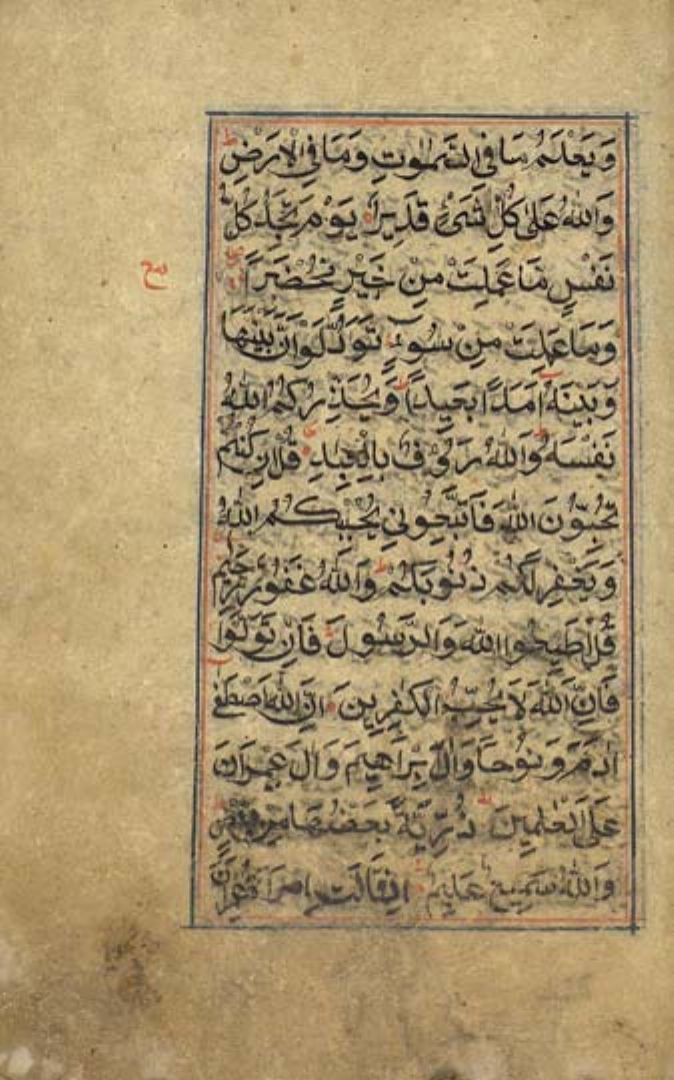 وَيَعْلَمُ مَا فِي السَّمٰوٰتِ وَمَا فِي الْاَرْضِ ط
وَاللّٰهُ عَلٰى كُلِّ شَيْءٍ قَدِيْرٌ يَوْمَ تَجِدُ كُلُّ
نَفْسٍ مَا عَمِلَتْ مِنْ خَيْرٍ مُحْضَرًا
وَمَا عَمِلَتْ مِنْ سُوْءٍ تَوَدُّ لَوْ اَنَّ بَيْنَهَا
وَبَيْنَهٗ اَمَدًا بَعِيْدًا ط وَيُحَذِّرُكُمُ اللّٰهُ
نَفْسَهٗ ط وَاللّٰهُ رَءُوْفٌ بِالْعِبَادِ قُلْ اِنْ كُنْتُمْ
تُحِبُّوْنَ اللّٰهَ فَاتَّبِعُوْنِيْ يُحْبِبْكُمُ اللّٰهُ
وَيَغْفِرْ لَكُمْ ذُنُوْبَكُمْ ط وَاللّٰهُ غَفُوْرٌ رَحِيْمٌ
قُلْ اَطِيْعُوا اللّٰهَ وَالرَّسُوْلَ فَاِنْ تَوَلَّوْا
فَاِنَّ اللّٰهَ لَا يُحِبُّ الْكٰفِرِيْنَ اِنَّ اللّٰهَ اصْطَفٰى
اٰدَمَ وَنُوْحًا وَاٰلَ اِبْرَاهِيْمَ وَاٰلَ عِمْرَانَ
عَلَى الْعٰلَمِيْنَ ذُرِّيَّةً بَعْضُهَا مِنْ بَعْضٍ
وَاللّٰهُ سَمِيْعٌ عَلِيْمٌ اِذْ قَالَتِ امْرَاَتُ عِمْرَانَ